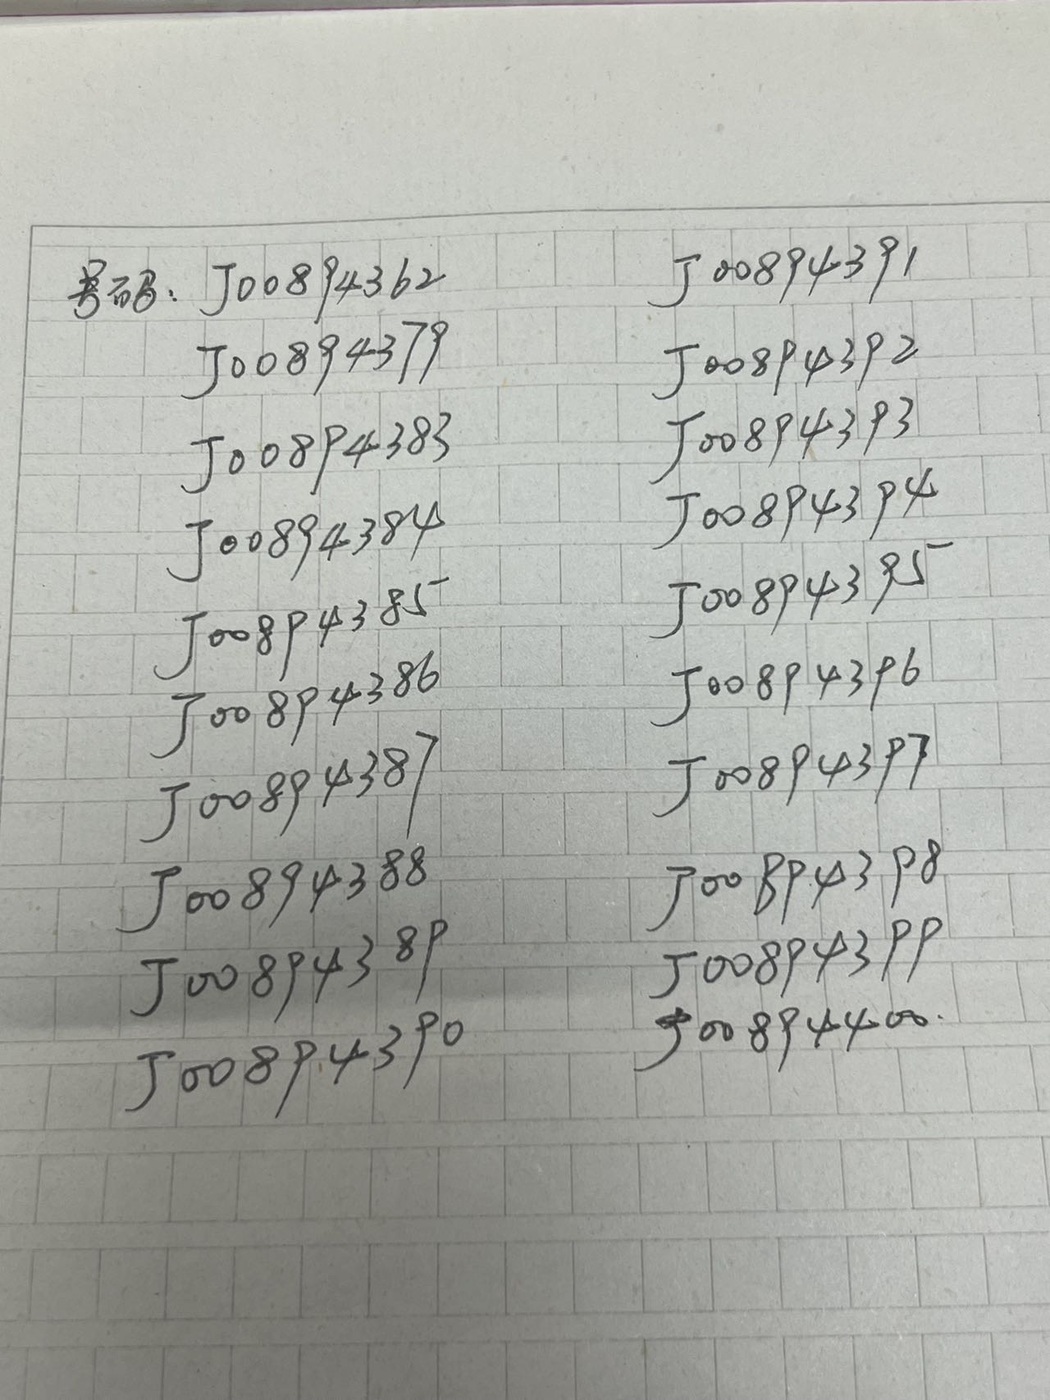 号码: J00894362
J00894379
J008943​83
J00894384
J00894385
J00894386
J00894387
J00894388
J00894389
J00894390
J00894391
J00894392
J00894393
J00894394
J00894395
J00894396
J00894397
J00894398
J00894399
J00894400.